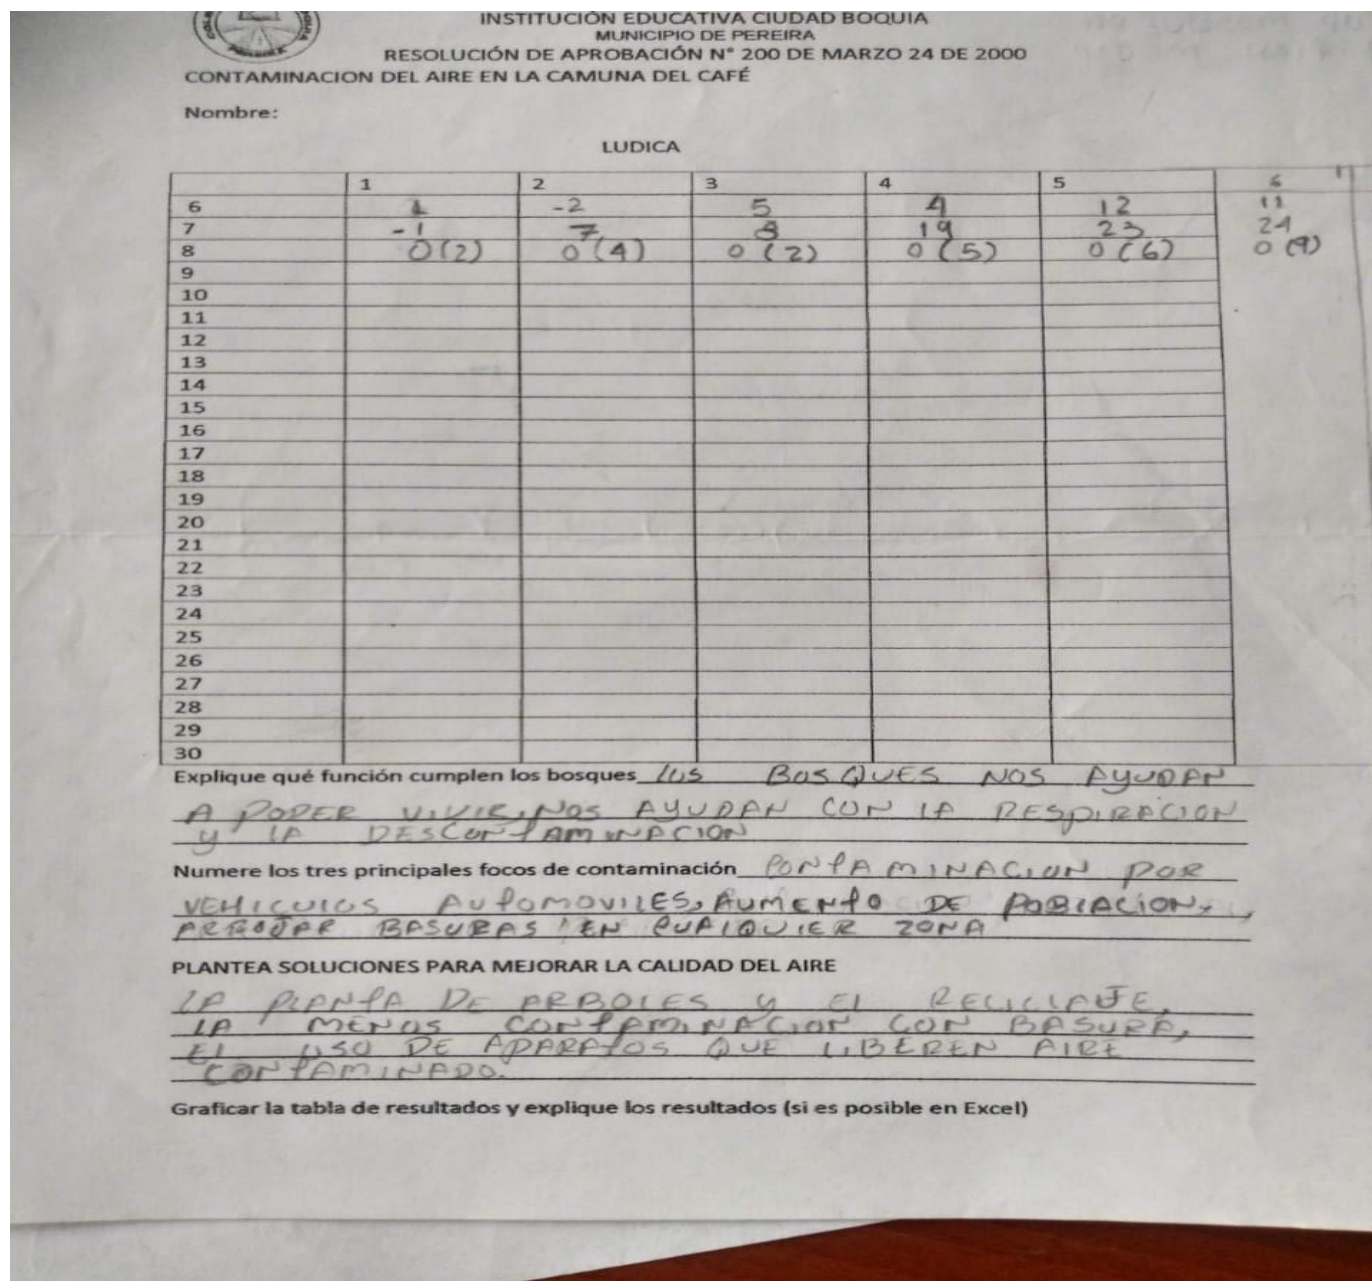 INSTITUCIÓN EDUCATIVA CIUDAD BOQUIA
MUNICIPIO DE PEREIRA
RESOLUCIÓN DE APROBACIÓN N° 200 DE MARZO 24 DE 2000
CONTAMINACION DEL AIRE EN LA CAMUNA DEL CAFÉ
Nombre:
LUDICA
1 2 3 4 5 6
6 1 -2 5 4 12 11
7 -1 7 8 19 23 24
8 0(2) 0(4) 0(2) 0(5) 0(6) 0(9)
9
10
11
12
13
14
15
16
17
18
19
20
21
22
23
24
25
26
27
28
29
30
Explique qué función cumplen los bosques LOS BOSQUES NOS AYUDAN
A PODER VIVIR, NOS AYUDAN CON LA RESPIRACION
Y LA DESCONTAMINACION
Numere los tres principales focos de contaminación CONTAMINACION POR
VEHICULOS AUTOMOVILES, AUMENTO DE POBLACION,
ARROJAR BASURAS EN CUALQUIER ZONA
PLANTEA SOLUCIONES PARA MEJORAR LA CALIDAD DEL AIRE
LA PLANTA DE ARBOLES Y EL RECICLAJE,
LA MENOS CONTAMINACION CON BASURA,
EL USO DE APARATOS QUE LIBEREN AIRE
CONTAMINADO.
Graficar la tabla de resultados y explique los resultados (si es posible en Excel)